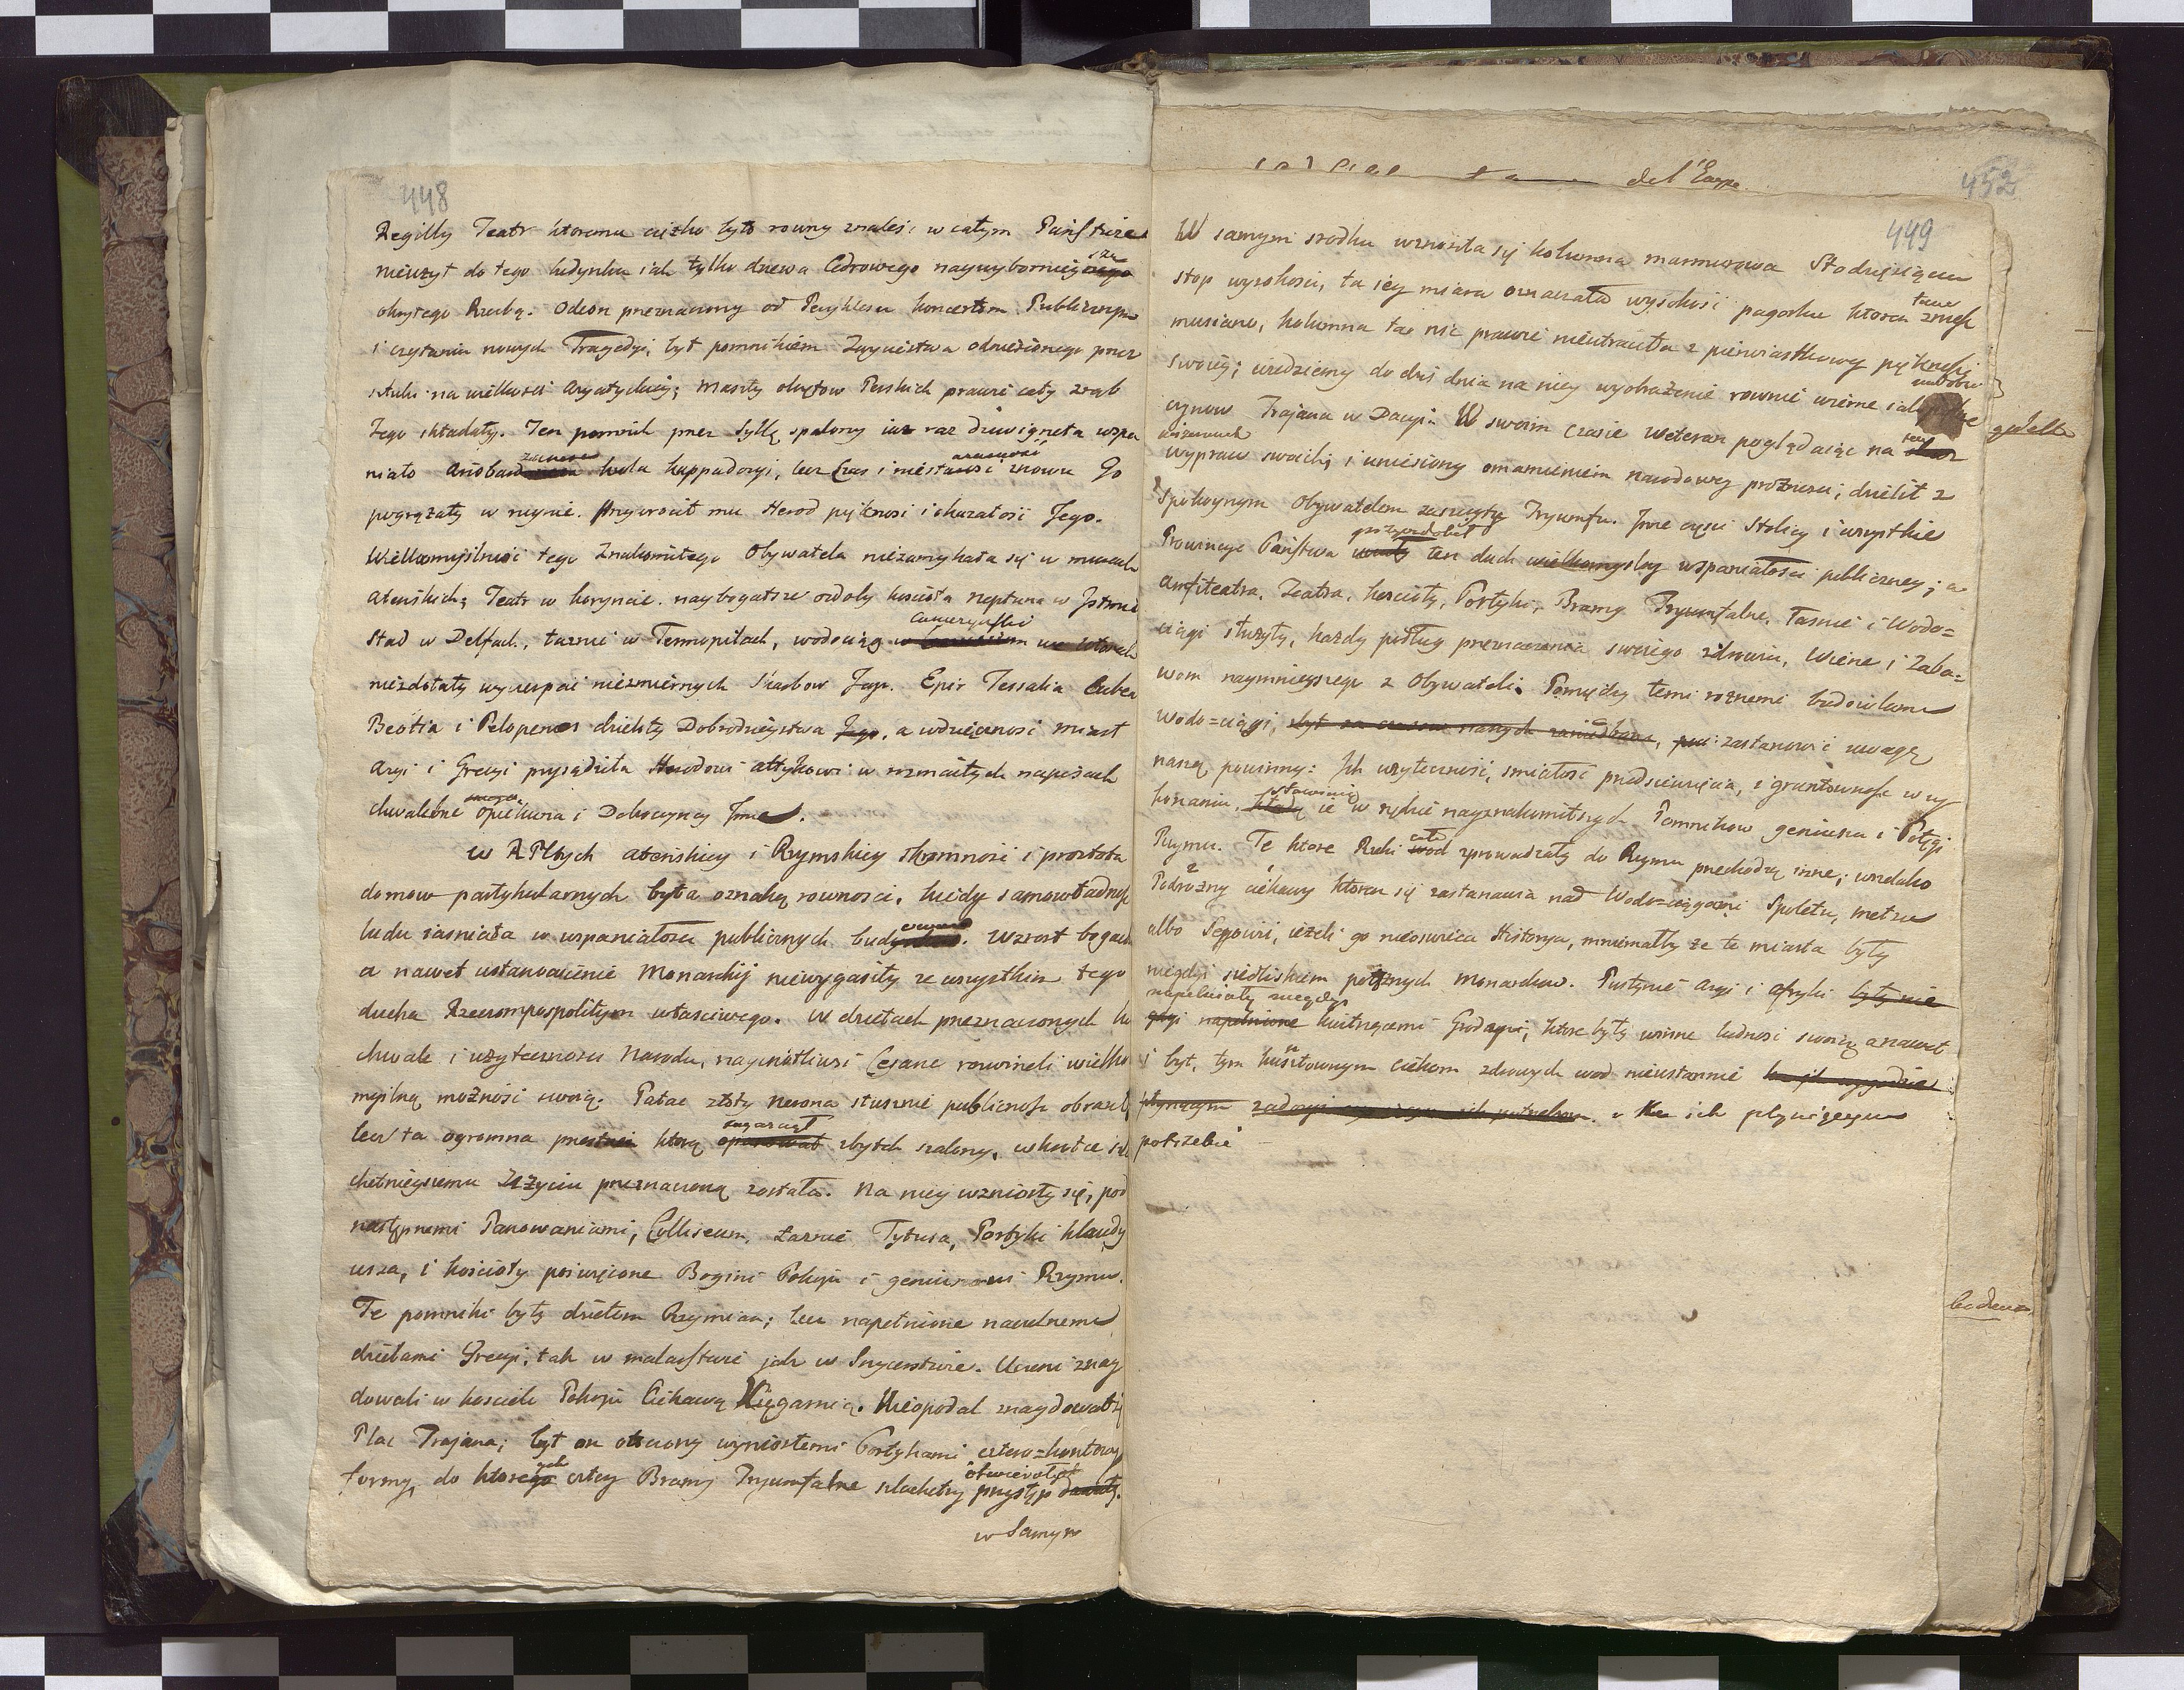 448
Regilly Teatr ktoremu ciężko było rowny znaleść w całym Państwie
nieużył do tego budynku iak tylko drzewa Cedrowego naywybornieysza
okrytego Rzeźbą. Odeon przeznaczony od Peryklesa koncertom Publicznym
i czytaniu nowych Tragedyi, był pomnikiem Zwycięstwa odniesionego przez
sztuki na wielkości azyatyckiey; Maszty okrętow Perskich prawie cały zrąb
Jego składały. Ten pomnik przez Syllę spalony iuż raz dzwignęła wspa
niało Ariobarzanesa krola kappadocyi, lecz Czas i niestałość znowu Go
pogrążały w ruynie. Przywrocił mu Herod piękność i okazałość Jego.
Wielkomyślność tego Znakomitego Obywatela niezamykała się w murach
ateńskich; Teatr w koryncie. naybogatsze ozdoby kościoła neptuna w Istmie
Stad w Delfach, łaznie w Termopilach, wodociąg Canuzyiski
niezdołały wyczerpać niezmiernych Skarbow Jego. Epir Tessalia Eubea
Beotia i Peloponez dzieliły Dobrodzieystwa Jego, a wdzięczność miast
Azyi i Grecyi przysądziła Herodowi attykowi w rozmaitych napisach
chwalebne opiekuna i Dobroczyńcy Jmie.
w RPltych ateńskiey i Rzymskiey skromność i prostota
domow partykularnych była oznaką rowności, kiedy samowładność
ludu iaśniała w wspaniałości publicznych budynkow. Wzrost bogactw
a nawet ustanowienie Monarchij niewygasiły ze wszystkim tego
ducha Rzeczompospolitym właściwego. W dziełach przeznaczonych ku
chwale i użyteczności Narodu, naycnotliwsi Cesarze rozwineli wielko
myślną możność swoią. Pałac złoty Nerona słusznie publiczność obraził
lecz ta ogromna przestrzeń ktorą zagarnął zbytek szalony, wkrotce szla
chetnieyszemu Użyciu przeznaczoną została. Na niey wzniosły się, pod
następnemi Panowaniami, Colliseum, łaznie Tytusa, Portyki klaudy
usza, i kościoły poświęcone Bogini Pokoju i geniuszowi Rzymu.
Te pomniki były dziełem Rzymian; lecz napełnione naczelnemi
dziełami Grecyi, tak w malarstwie jak w Snycerstwie. Uczeni znay
dowali w kosciele Pokoju Ciekawą Xięgarnią. Nieopodal znaydował się
Plac Trajana; był on otoczony wyniosłemi Portykami czworo=kontowey
formy, do ktorych cztery Bramy Tryumfalne szlachetny przystęp otwierały.
w Samym
del'Europe
452
449
W samym srodku wznosiła się kolumna marmurowa Stodziesięciu
stop wysokości, ta iey miara oznaczała wysokość pagorka ktora znieść
musiano, kolumna ta nic prawie nieutraciła z pierwiastkowey piękności
swoiey; widziemy do dziś dnia na niey wyobrażenie rownie wierne iako
czynow Trajana w Dacyi. W swoim czasie Weteran poglądaiąc na
wypraw swoich; i uniesiony omamieniem narodowey prożności; dzielił z
Spokoynym Obywatelem zaszczyty Tryumfu. Jnne części Stolicy i wszystkie
Prowincye Państwa przyozdobił ten duch wielkomyslny wspaniałości publiczney; a
amfiteatra, Teatra, kościoły, Portyki, Bramy Tryumfalne, Łaznie i Wodo=
ciągi służyły, każdy podług przeznaczenia swoiego zdrowiu, Wierze i Zaba=
wom naymnieyszego z Obywateli. Pomiędzy temi rożnemi budowlami
Wodo=ciągi, zbyt za czasow naszych zaniedbane, zastanowić uwagę
naszą powinny: Ich użyteczność, smiałość przedsiewzięcia, i gruntowność wy
konania, stawią ie w rzędzie nayznakomitszych Pomnikow geniusza i Potęgi
Rzymu. Te ktore Rzeki całe sprowadzały do Rzymu przechodzą inne; wszelako
Podrożny ciekawy ktory się zastanawia nad Wodo=ciągami Spoletu, metzu
albo Segowii, ieżeli go nieoswieca Historya, mniemałby że te miasta były
niegdyś siedliskiem potężnych Monarchow. Pustynie azyi i afryki były nie
napełniały niegdyś
gdyś napełnione kwitnącemi Grodami, ktore były winne ludność swoią a nawet
i byt, tym kusztownym ciekom zdrowych wod nieustannie
ku ich płynącym
potrzebie